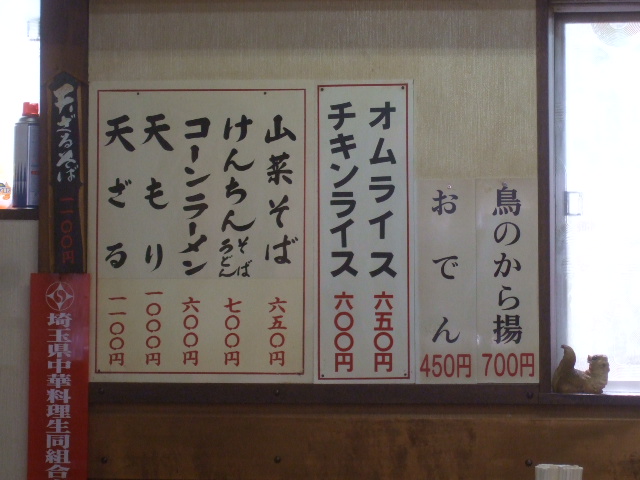 鳥のから揚
700円
おでん
450円
オムライス
六五〇円
チキンライス
六〇〇円
山菜そば
六五〇円
けんちん
そば
うどん
七〇〇円
コーンラーメン
六〇〇円
天もり
一〇〇〇円
天ざる
一一〇〇円
天ざるそば
一一〇〇円
埼玉県中華料理生同組合